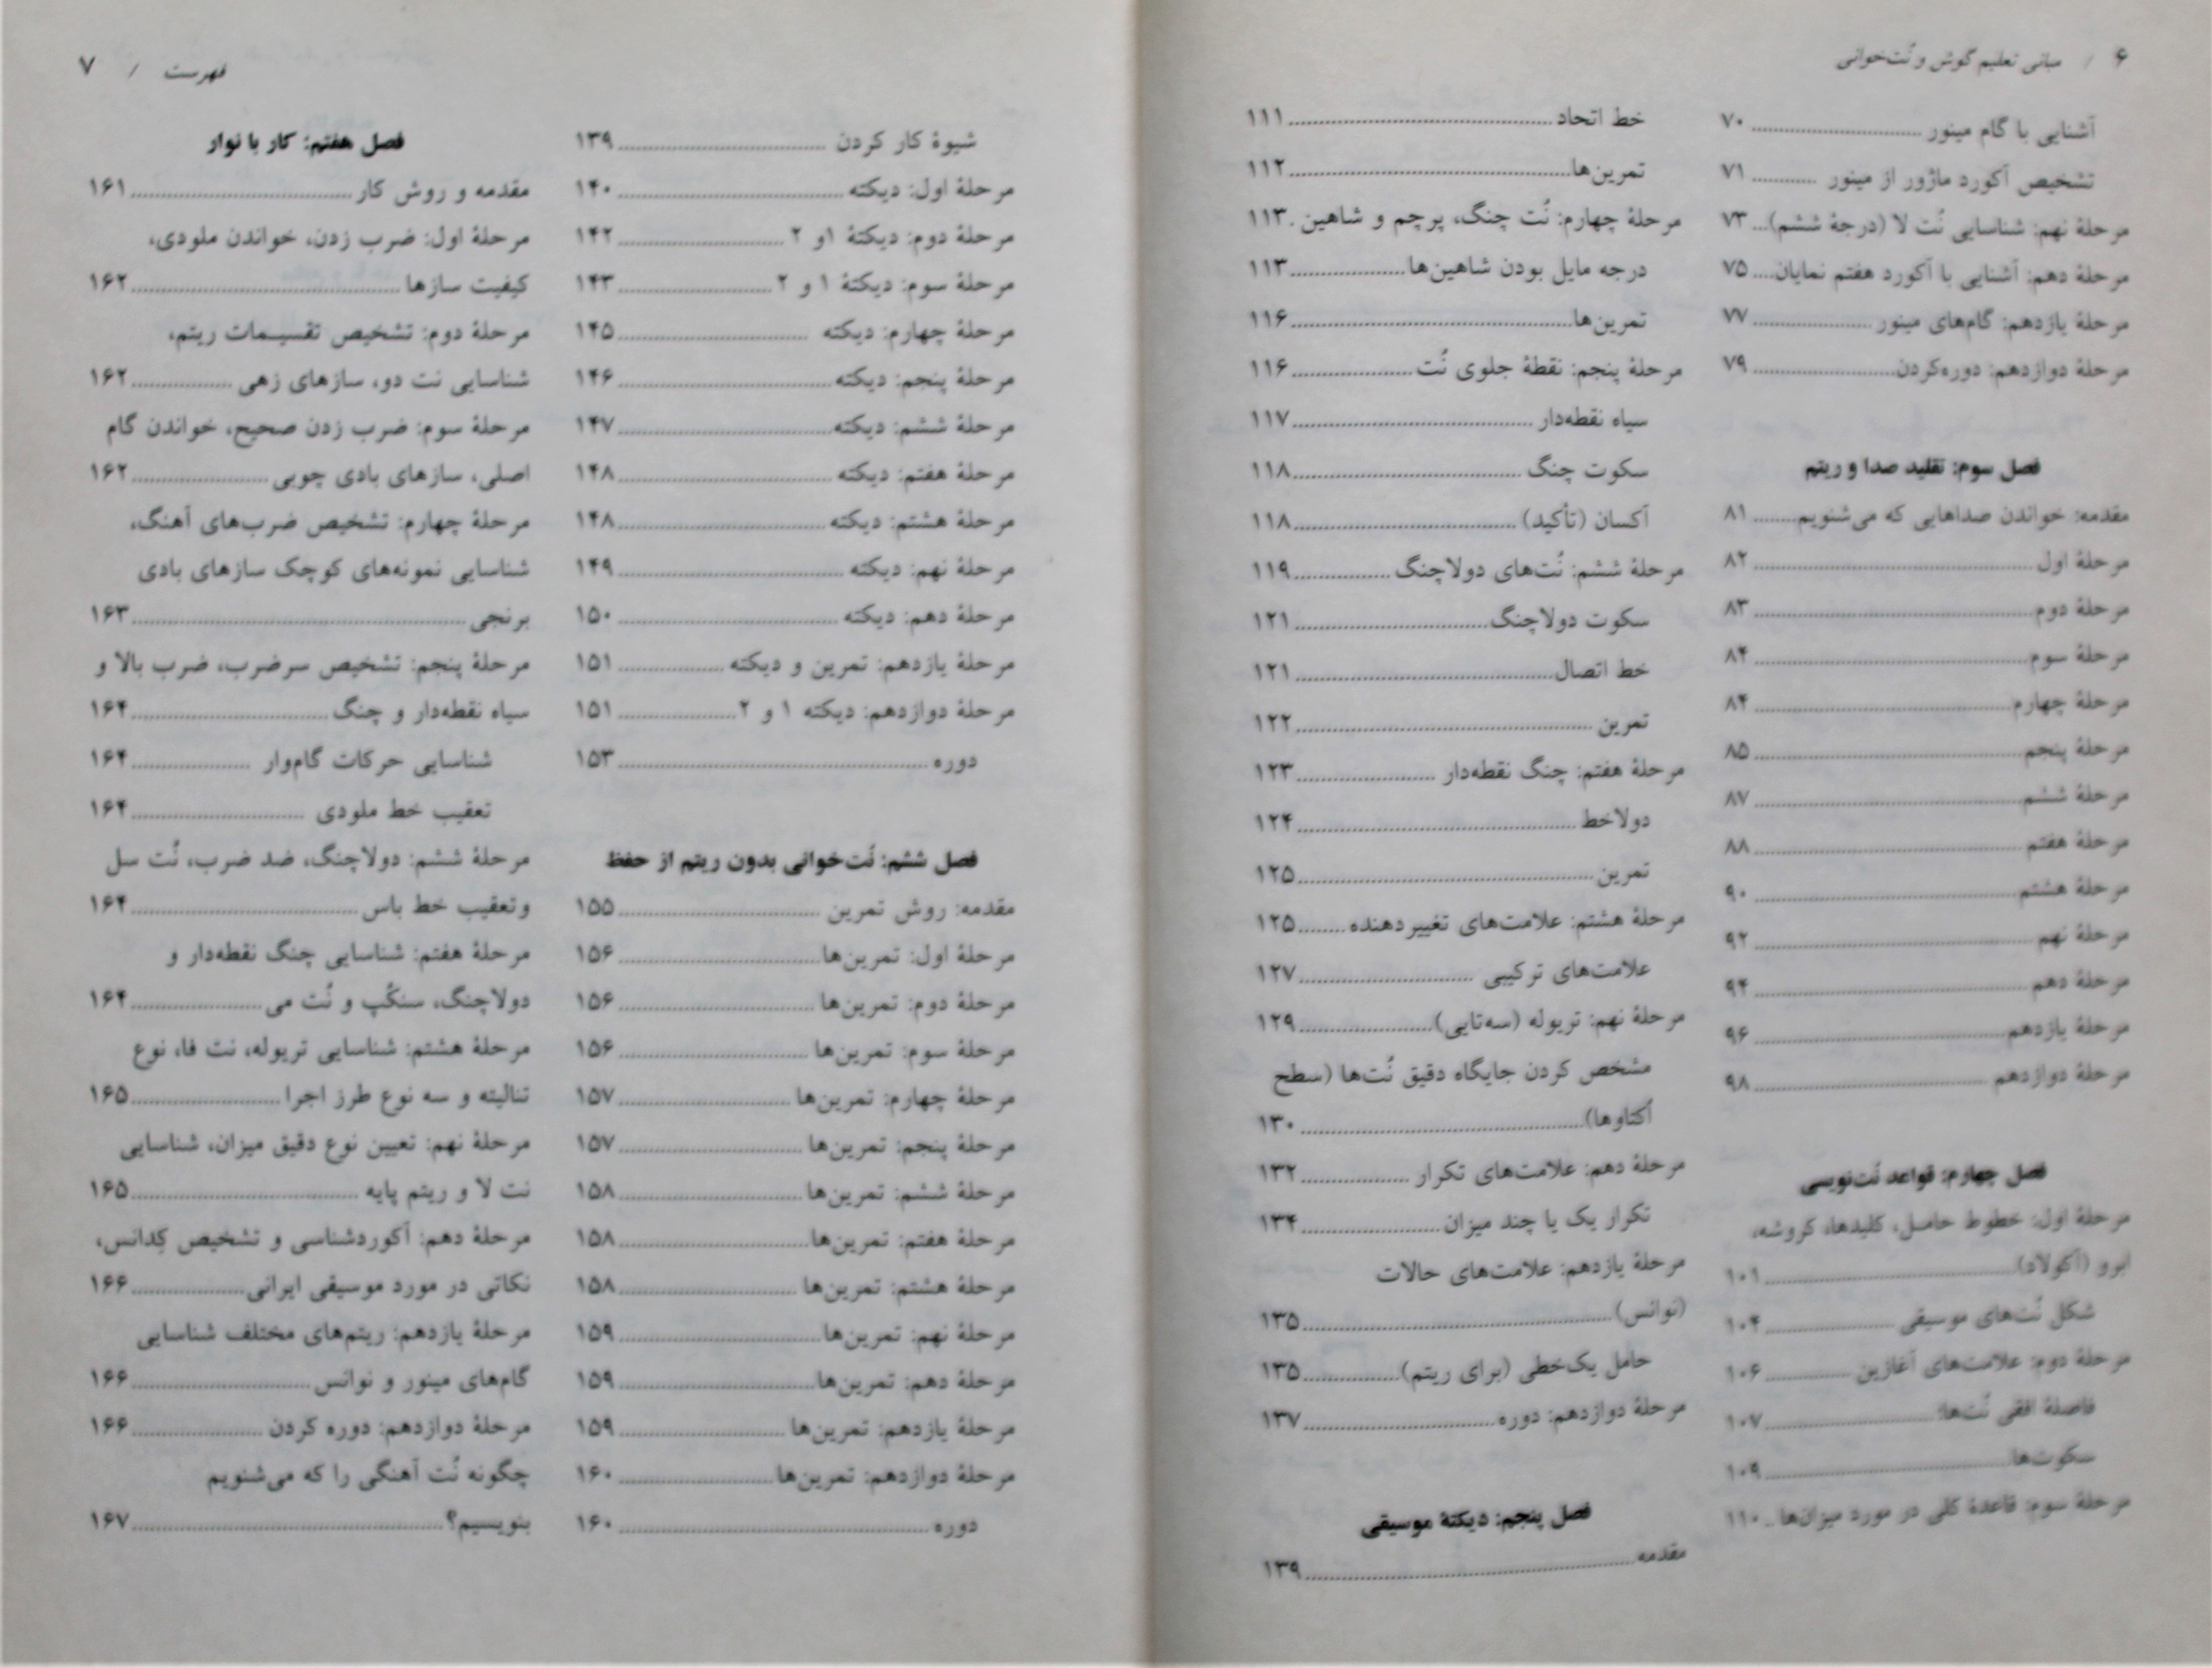 ۶ / مبانی تعلیم گوش و نُت‌خوانی
آشنایی با گام مینور ........ ۷۰
تشخیص آکورد ماژور از مینور ........ ۷۱
مرحلهٔ نهم: شناسایی نُت لا (درجهٔ ششم) ... ۷۳
مرحلهٔ دهم: آشنایی با آکورد هفتم نمایان .... ۷۵
مرحلهٔ یازدهم: گام‌های مینور ........ ۷۷
مرحلهٔ دوازدهم: دوره‌کردن ........ ۷۹
فصل سوم: تقلید صدا و ریتم
مقدمه: خواندن صداهایی که می‌شنویم ........ ۸۱
مرحلهٔ اول ........ ۸۲
مرحلهٔ دوم ........ ۸۳
مرحلهٔ سوم ........ ۸۴
مرحلهٔ چهارم ........ ۸۴
مرحلهٔ پنجم ........ ۸۵
مرحلهٔ ششم ........ ۸۷
مرحلهٔ هفتم ........ ۸۸
مرحلهٔ هشتم ........ ۹۰
مرحلهٔ نهم ........ ۹۲
مرحلهٔ دهم ........ ۹۴
مرحلهٔ یازدهم ........ ۹۶
مرحلهٔ دوازدهم ........ ۹۸
فصل چهارم: قواعد نُت‌نویسی
مرحلهٔ اول: خطوط حامل، کلیدها، کروشه،
ابرو (آکولاد) ........ ۱۰۱
شکل نُت‌های موسیقی ........ ۱۰۴
مرحلهٔ دوم: علامت‌های آغازین ........ ۱۰۶
فاصلهٔ افقی نُت‌ها ........ ۱۰۷
سکوت‌ها ........ ۱۰۹
مرحلهٔ سوم: قاعدهٔ کلی در مورد میزان‌ها .. ۱۱۰
خط اتحاد ........ ۱۱۱
تمرین‌ها ........ ۱۱۲
مرحلهٔ چهارم: نُت چنگ، پرچم و شاهین . ۱۱۳
درجه مایل بودن شاهین‌ها ........ ۱۱۳
تمرین‌ها ........ ۱۱۶
مرحلهٔ پنجم: نقطهٔ جلوی نُت ........ ۱۱۶
سیاه نقطه‌دار ........ ۱۱۷
سکوت چنگ ........ ۱۱۸
آکسان (تأکید) ........ ۱۱۸
مرحلهٔ ششم: نُت‌های دولاچنگ ........ ۱۱۹
سکوت دولاچنگ ........ ۱۲۱
خط اتصال ........ ۱۲۱
تمرین ........ ۱۲۲
مرحلهٔ هفتم: چنگ نقطه‌دار ........ ۱۲۳
دولاخط ........ ۱۲۴
تمرین ........ ۱۲۵
مرحلهٔ هشتم: علامت‌های تغییردهنده ........ ۱۲۵
علامت‌های ترکیبی ........ ۱۲۷
مرحلهٔ نهم: تریوله (سه‌تایی) ........ ۱۲۹
مشخص کردن جایگاه دقیق نُت‌ها (سطح
اُکتاوها) ........ ۱۳۰
مرحلهٔ دهم: علامت‌های تکرار ........ ۱۳۲
تکرار یک یا چند میزان ........ ۱۳۴
مرحلهٔ یازدهم: علامت‌های حالات
(نوانس) ........ ۱۳۵
حامل یک‌خطی (برای ریتم) ........ ۱۳۵
مرحلهٔ دوازدهم: دوره ........ ۱۳۷
فصل پنجم: دیکتهٔ موسیقی
مقدمه ........ ۱۳۹
فهرست / ۷
شیوهٔ کار کردن ........ ۱۳۹
مرحلهٔ اول: دیکته ........ ۱۴۰
مرحلهٔ دوم: دیکتهٔ ۱و ۲ ........ ۱۴۲
مرحلهٔ سوم: دیکتهٔ ۱ و ۲ ........ ۱۴۳
مرحلهٔ چهارم: دیکته ........ ۱۴۵
مرحلهٔ پنجم: دیکته ........ ۱۴۶
مرحلهٔ ششم: دیکته ........ ۱۴۷
مرحلهٔ هفتم: دیکته ........ ۱۴۸
مرحلهٔ هشتم: دیکته ........ ۱۴۸
مرحلهٔ نهم: دیکته ........ ۱۴۹
مرحلهٔ دهم: دیکته ........ ۱۵۰
مرحلهٔ یازدهم: تمرین و دیکته ........ ۱۵۱
مرحلهٔ دوازدهم: دیکته ۱ و ۲ ........ ۱۵۱
دوره ........ ۱۵۳
فصل ششم: نُت‌خوانی بدون ریتم از حفظ
مقدمه: روش تمرین ........ ۱۵۵
مرحلهٔ اول: تمرین‌ها ........ ۱۵۶
مرحلهٔ دوم: تمرین‌ها ........ ۱۵۶
مرحلهٔ سوم: تمرین‌ها ........ ۱۵۶
مرحلهٔ چهارم: تمرین‌ها ........ ۱۵۷
مرحلهٔ پنجم: تمرین‌ها ........ ۱۵۷
مرحلهٔ ششم: تمرین‌ها ........ ۱۵۸
مرحلهٔ هفتم: تمرین‌ها ........ ۱۵۸
مرحلهٔ هشتم: تمرین‌ها ........ ۱۵۸
مرحلهٔ نهم: تمرین‌ها ........ ۱۵۹
مرحلهٔ دهم: تمرین‌ها ........ ۱۵۹
مرحلهٔ یازدهم: تمرین‌ها ........ ۱۵۹
مرحلهٔ دوازدهم: تمرین‌ها ........ ۱۶۰
دوره ........ ۱۶۰
فصل هفتم: کار با نوار
مقدمه و روش کار ........ ۱۶۱
مرحلهٔ اول: ضرب زدن، خواندن ملودی،
کیفیت سازها ........ ۱۶۲
مرحلهٔ دوم: تشخیص تقسیمات ریتم،
شناسایی نت دو، سازهای زهی ........ ۱۶۲
مرحلهٔ سوم: ضرب زدن صحیح، خواندن گام
اصلی، سازهای بادی چوبی ........ ۱۶۲
مرحلهٔ چهارم: تشخیص ضرب‌های آهنگ،
شناسایی نمونه‌های کوچک سازهای بادی
برنجی ........ ۱۶۳
مرحلهٔ پنجم: تشخیص سرضرب، ضرب بالا و
سیاه نقطه‌دار و چنگ ........ ۱۶۴
شناسایی حرکات گام‌وار ........ ۱۶۴
تعقیب خط ملودی ........ ۱۶۴
مرحلهٔ ششم: دولاچنگ، ضد ضرب، نُت سل
وتعقیب خط باس ........ ۱۶۴
مرحلهٔ هفتم: شناسایی چنگ نقطه‌دار و
دولاچنگ، سنکُپ و نُت می ........ ۱۶۴
مرحلهٔ هشتم: شناسایی تریوله، نت فا، نوع
تنالیته و سه نوع طرز اجرا ........ ۱۶۵
مرحلهٔ نهم: تعیین نوع دقیق میزان، شناسایی
نت لا و ریتم پایه ........ ۱۶۵
مرحلهٔ دهم: آکوردشناسی و تشخیص کِدانس،
نکاتی در مورد موسیقی ایرانی ........ ۱۶۶
مرحلهٔ یازدهم: ریتم‌های مختلف شناسایی
گام‌های مینور و نوانس ........ ۱۶۶
مرحلهٔ دوازدهم: دوره کردن ........ ۱۶۶
چگونه نُت آهنگی را که می‌شنویم
بنویسیم؟ ........ ۱۶۷